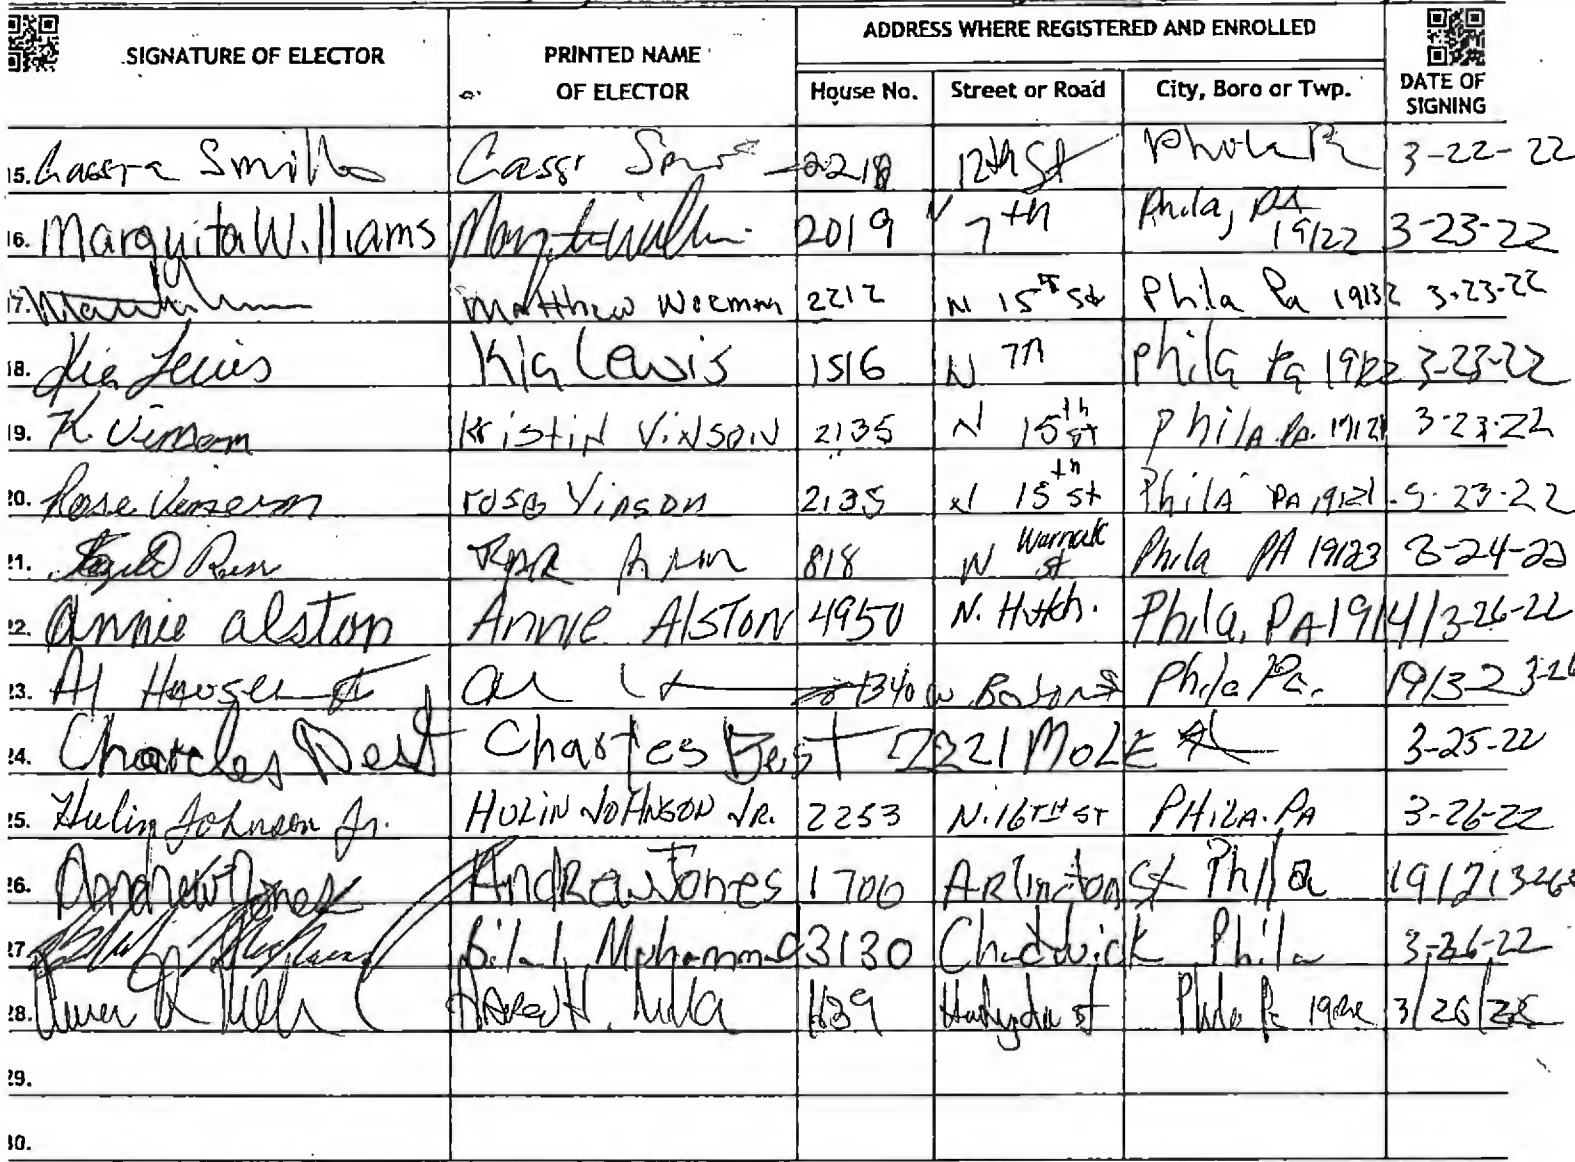 SIGNATURE OF ELECTOR
PRINTED NAME OF ELECTOR
ADDRESS WHERE REGISTERED AND ENROLLED
House No. Street or Road City, Boro or Twp.
DATE OF SIGNING
15. Smith Cassi 2218 12th St Phila Pa 3-22-22
16. Marquita Williams 2019 N 7th Phila, PA 19122 3-23-22
17. Matthew 2212 N 15th St Phila Pa 19132 3-23-22
18. Kia Lewis Kia Lewis 1516 N 7th Phila Pa 19122 3-23-22
19. K. Vinson Kristin Vinson 2135 N 15th st Phila. Pa. 19121 3-23-22
20. Rose Vinson rose Vinson 2135 N 15th st Phila PA 19121 3-23-22
21. 818 N Warnock st Phila PA 19123 3-24-22
22. annie alston Annie Alston 4950 N. Hutch. Phila, PA 19141 3-26-22
23. Al 1340 W Phila Pa. 19132 3-26
24. Charles Best Charles Best 2221 MOLE St 3-25-22
25. Hulin Johnson Jr. HULIN JOHNSON JR. 2253 N. 16TH ST PHILA. PA 3-26-22
26. Andrew Jones Andrew Jones 1700 Arlington St Phila 19121 3-26-2
27. Bilal Muhammad 3130 Chadwick Phila 3-26-22
28. st Phila Pa 3/26/22
29.
30.